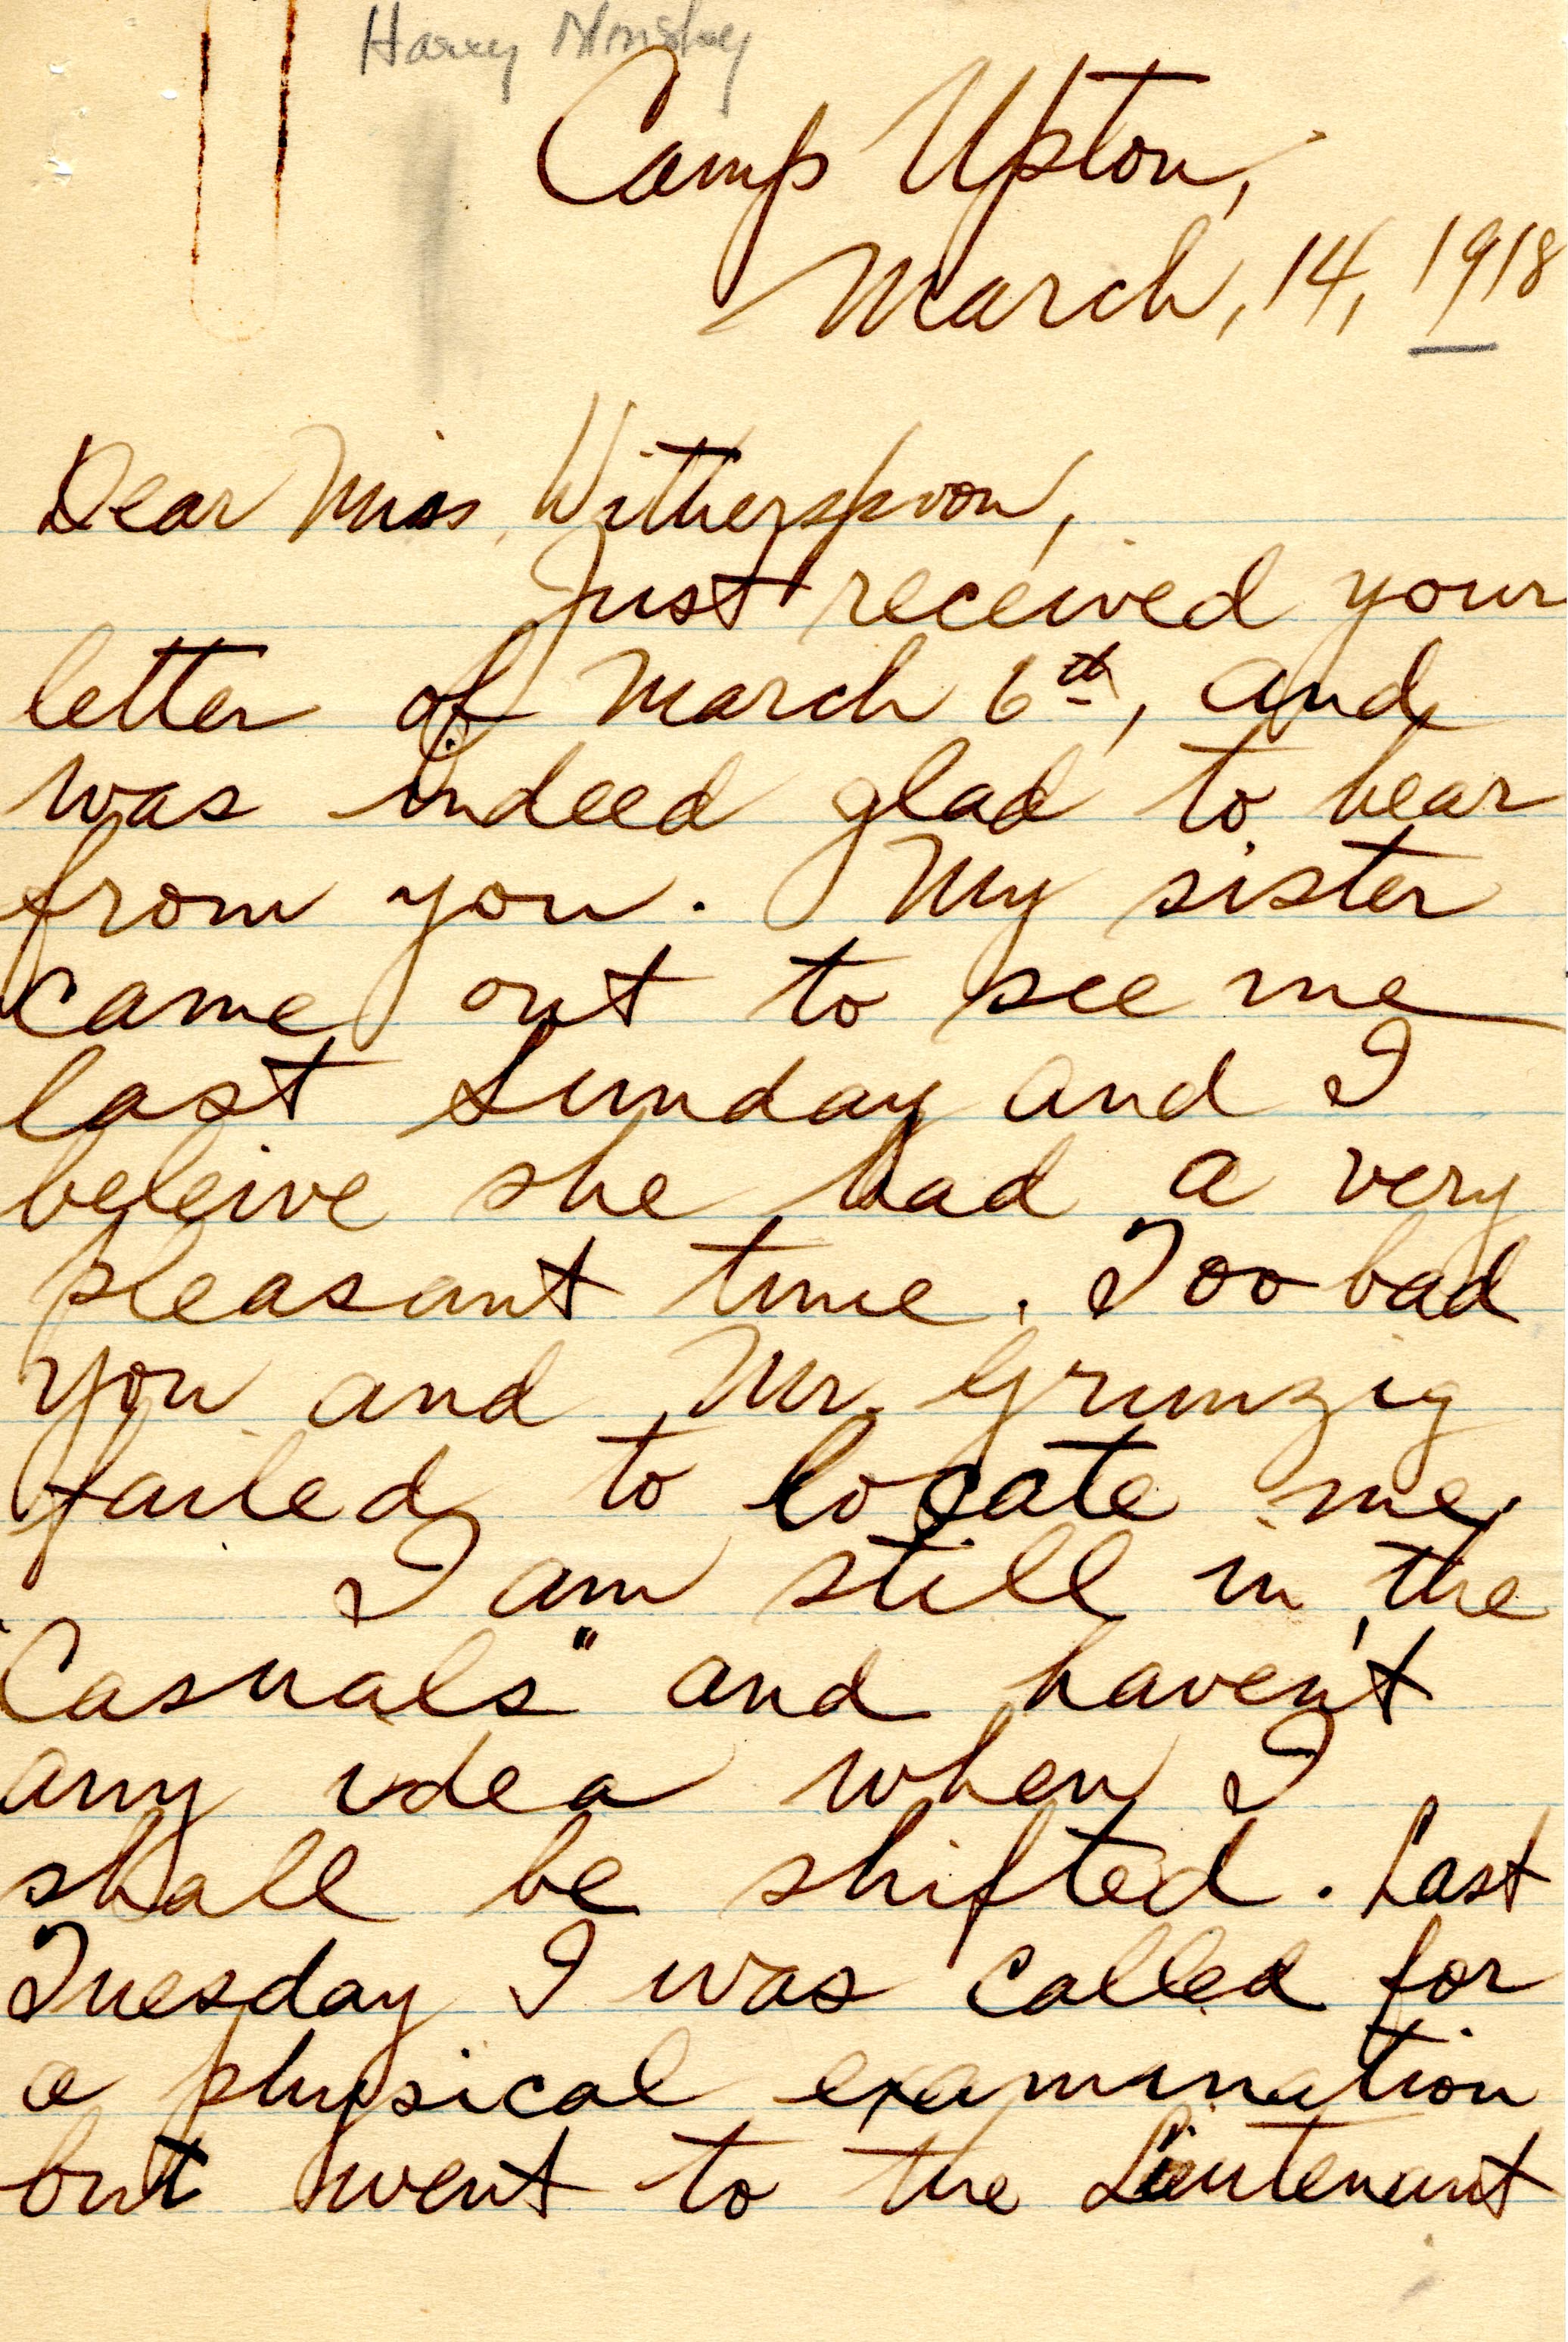 Harry
Camp Upton,
March, 14, 1918
Dear Miss Witherspoon,
Just received your
letter of March 6th, and
was indeed glad to hear
from you. My sister
came out to see me
last Sunday and I
beleive she had a very
pleasant time. Too bad
you and Mr. Grunzig
failed to locate me.
I am still in the
"Casuals" and haven't
any idea when I
shall be shifted. Last
Tuesday I was called for
a physical examination
but went to the Lieutenant